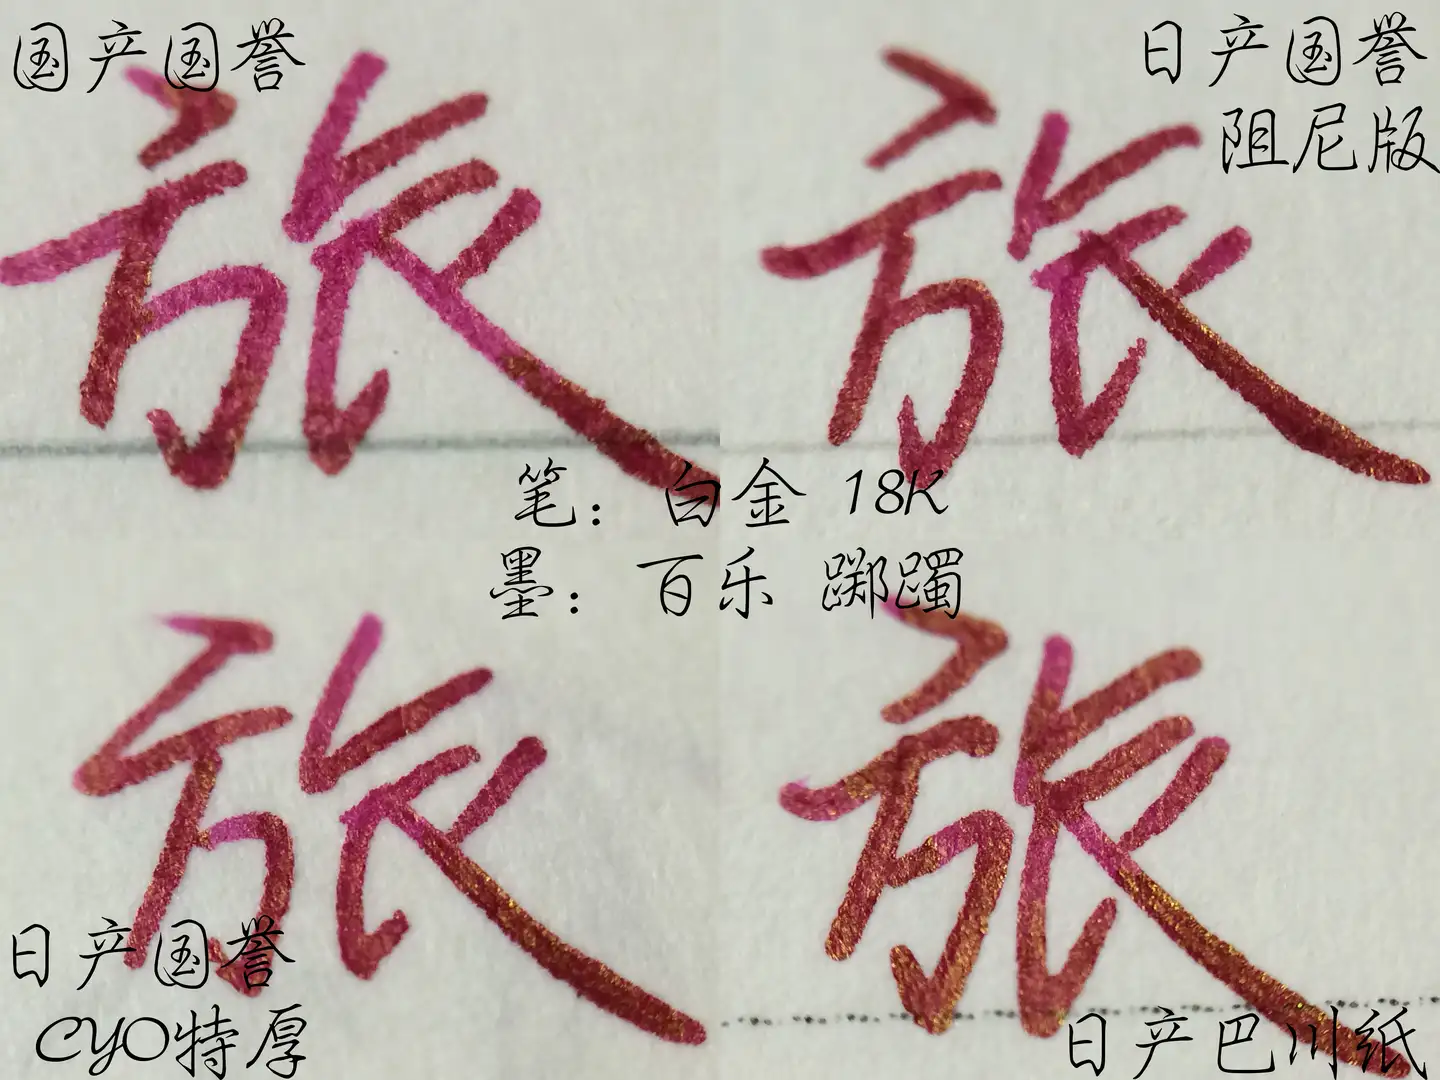 国产国誉
日产国誉
阻尼版
旅
旅
笔：白金 18K
墨：百乐 踯躅
旅
旅
日产国誉
CYO特厚
日产巴川纸